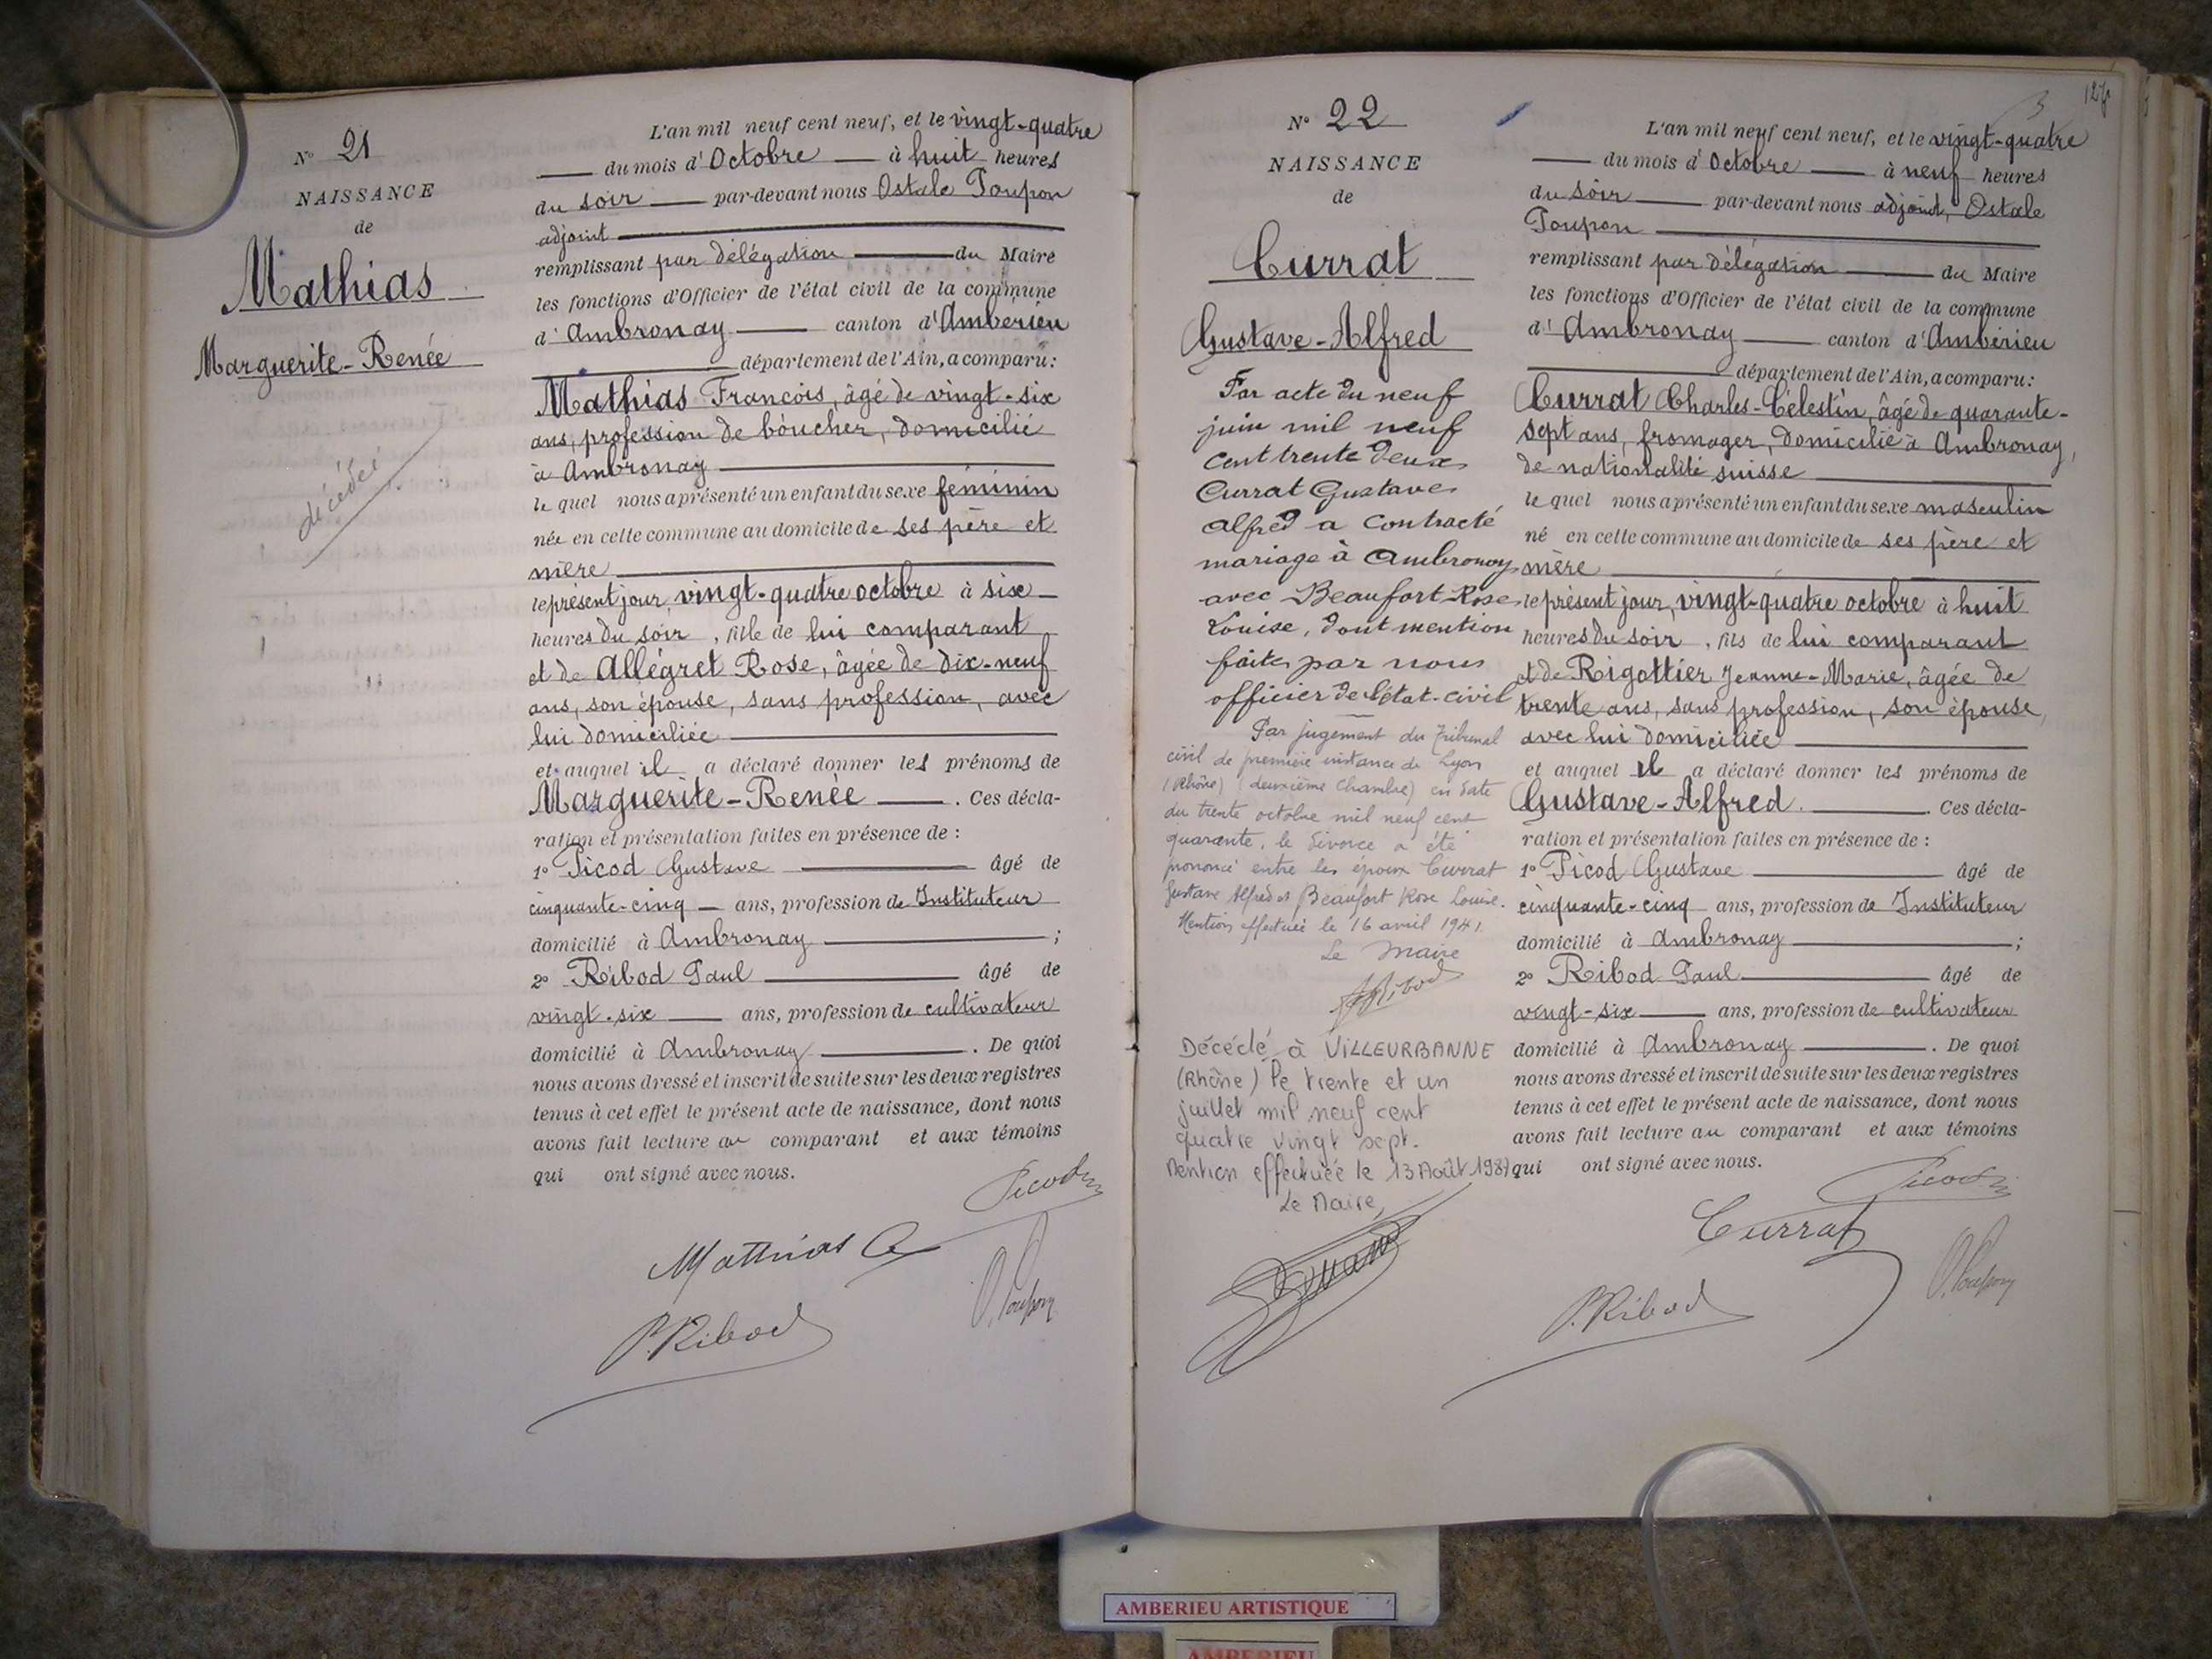 N° 21
NAISSANCE
de
Mathias
Marguerite-Renée
décédée
L'an mil neuf cent neuf, et le vingt-quatre
du mois d'Octobre à huit heures
du soir par-devant nous Ostale Poupon
adjoint
remplissant par délégation du Maire
les fonctions d'Officier de l'état civil de la commune
d'Ambronay canton d'Ambérieu
département de l'Ain, a comparu:
Mathias François, âgé de vingt-six
ans, profession de boucher, domicilié
à Ambronay
le quel nous a présenté un enfant du sexe féminin
née en cette commune au domicile de ses père et
mère
le présent jour, vingt-quatre octobre à six
heures du soir, fille de lui comparant
et de Allégret Rose, âgée de dix-neuf
ans, son épouse, sans profession, avec
lui domiciliée
et auquel il a déclaré donner les prénoms de
Marguerite-Renée. Ces décla-
ration et présentation faites en présence de :
1° Picod Gustave âgé de
cinquante-cinq ans, profession de Instituteur
domicilié à Ambronay ;
2° Ribod Paul âgé de
vingt-six ans, profession de cultivateur
domicilié à Ambronay. De quoi
nous avons dressé et inscrit de suite sur les deux registres
tenus à cet effet le présent acte de naissance, dont nous
avons fait lecture au comparant et aux témoins
qui ont signé avec nous.
Picod
Matthias
O. Poupon
P. Ribod
N° 22
NAISSANCE
de
Currat
Gustave-Alfred
Par acte du neuf
juin mil neuf
cent trente deux
Currat Gustave
Alfred a contracté
mariage à Ambronay
avec Beaufort Rose
Louise, dont mention
faite par nous
officier de l'état-civil
Par jugement du Tribunal
civil de première instance de Lyon
(Rhône) (deuxième Chambre) en date
du trente octobre mil neuf cent
quarante, le divorce a été
prononcé entre les époux Currat
Gustave Alfred et Beaufort Rose Louise.
Mention effectuée le 16 avril 1941.
Le Maire
Ribod
Décédé à VILLEURBANNE
(Rhône) le trente et un
juillet mil neuf cent
quatre vingt sept.
Mention effectuée le 13 Août 1987
Le Maire,
127
L'an mil neuf cent neuf, et le vingt-quatre
du mois d'Octobre à neuf heures
du soir par-devant nous adjoint, Ostale
Poupon
remplissant par délégation du Maire
les fonctions d'Officier de l'état civil de la commune
d'Ambronay canton d'Ambérieu
département de l'Ain, a comparu:
Currat Charles-Célestin, âgé de quarante-
sept ans, fromager, domicilié à Ambronay,
de nationalité suisse
le quel nous a présenté un enfant du sexe masculin
né en cette commune au domicile de ses père et
mère
le présent jour, vingt-quatre octobre à huit
heures du soir, fils de lui comparant
et de Rigottier Jeanne-Marie, âgée de
trente ans, sans profession, son épouse,
avec lui domiciliée
et auquel il a déclaré donner les prénoms de
Gustave-Alfred. Ces décla-
ration et présentation faites en présence de :
1° Picod Gustave âgé de
cinquante-cinq ans, profession de Instituteur
domicilié à Ambronay ;
2° Ribod Paul âgé de
vingt-six ans, profession de cultivateur
domicilié à Ambronay. De quoi
nous avons dressé et inscrit de suite sur les deux registres
tenus à cet effet le présent acte de naissance, dont nous
avons fait lecture au comparant et aux témoins
qui ont signé avec nous.
Picod
Currat
O. Poupon
P. Ribod
AMBERIEU ARTISTIQUE
AMBERIEU